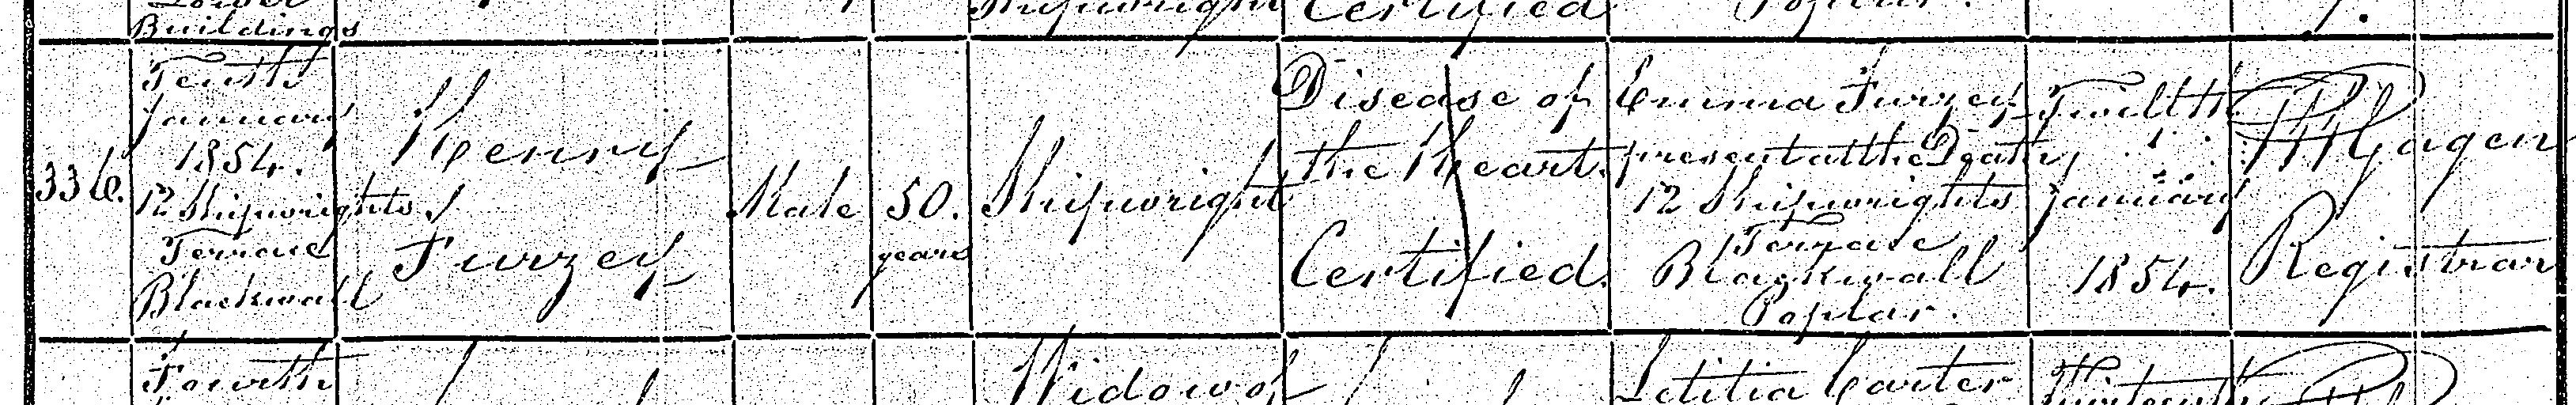 Buildings
Shipwright
Certified
Poplar.
336.
Tenth
January
1854.
12 Shipwrights
Terrace
Blackwall
Henry
Furzey
Male
50.
years
Shipwright
Disease of
the Heart.
Certified.
Emma Furzey
present at the Death
12 Shipwrights
Terrace
Blackwall
Poplar.
Twelfth
January
1854.
Registrar
Fourth
Widow of
Letitia Carter
Thirteenth